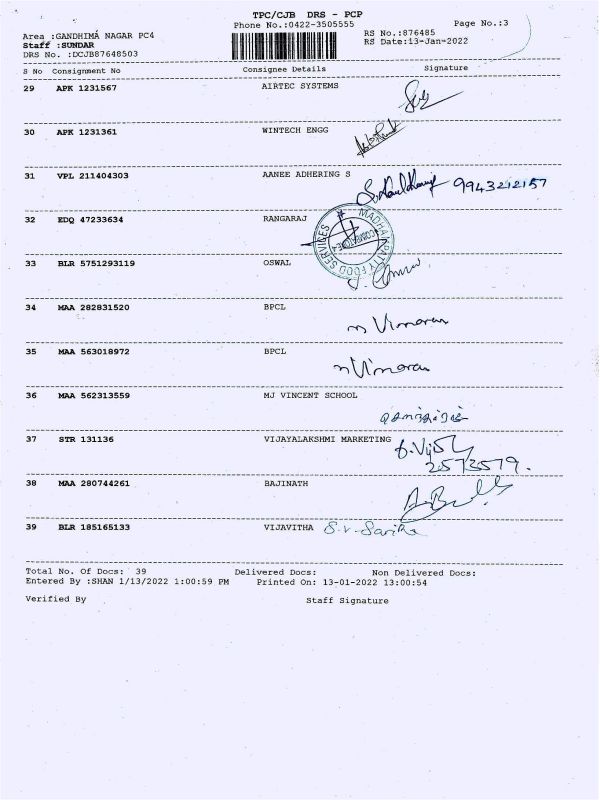 TPC/CJB DRS - PCP
Phone No.:0422-3505555
Page No.:3
Area :GANDHIMA NAGAR PC4
RS No.:876485
Staff :SUNDAR
RS Date:13-Jan-2022
DRS No. :DCJB87648503
S No Consignment No Consignee Details Signature
29 APK 1231567 AIRTEC SYSTEMS
30 APK 1231361 WINTECH ENGG
31 VPL 211404303 AANEE ADHERING S 9943212157
32 EDQ 47233634 RANGARAJ
MADHAMPATTY FOOD SERVICES
COIMBATORE
33 BLR 5751293119 OSWAL
34 MAA 282831520 BPCL
35 MAA 563018972 BPCL
36 MAA 562313559 MJ VINCENT SCHOOL
37 STR 131136 VIJAYALAKSHMI MARKETING
2573579.
38 MAA 280744261 BAJINATH
39 BLR 185165133 VIJAVITHA
Total No. Of Docs: 39 Delivered Docs: Non Delivered Docs:
Entered By :SHAN 1/13/2022 1:00:59 PM Printed On: 13-01-2022 13:00:54
Verified By Staff Signature